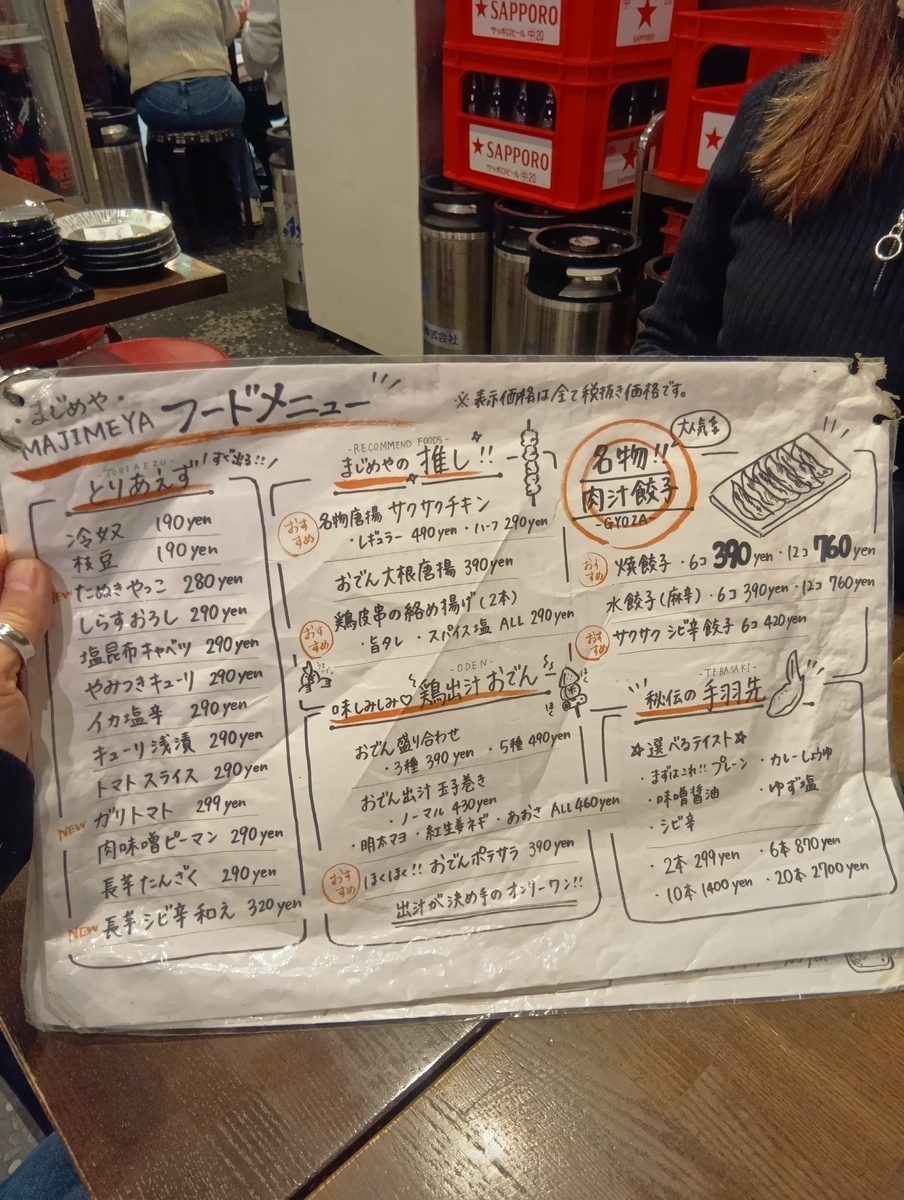 SAPPORO
サッポロビール 中20
★SAPPORO
サッポロビール 中20
株式会社
・まじめや・
MAJIMEYA フードメニュー
※表示価格は全て税抜き価格です。
-TORIAEZU-
とりあえず すぐ出る!!
冷奴 190yen
枝豆 190yen
NEW たぬきやっこ 280yen
しらすおろし 290yen
塩昆布キャベツ 290yen
やみつきキューリ 290yen
イカ塩辛 290yen
キューリ浅漬 290yen
トマトスライス 290yen
NEW ガリトマト 299yen
肉味噌ピーマン 290yen
長芋たんざく 290yen
NEW 長芋シビ辛和え 320yen
-RECOMMEND FOODS-
まじめやの推し!!
おすすめ 名物唐揚 サクサクチキン
・レギュラー 490yen ・ハーフ 290yen
おでん大根唐揚 390yen
おすすめ 鶏皮串の絡め揚げ(2本)
・旨タレ ・スパイス塩 ALL 290yen
-ODEN-
味しみしみ♡鶏出汁おでん
おでん盛り合わせ
・3種 390yen ・5種 490yen
おでん出汁 玉子巻き
・ノーマル 430yen
・明太マヨ ・紅生姜ネギ ・あおさ ALL 460yen
おすすめ ほくほく!! おでんポテサラ 390yen
出汁が決め手のオンリーワン!!
名物!!
肉汁餃子
-GYOZA-
大人気
おすすめ 焼餃子 ・6コ 390yen ・12コ 760yen
水餃子(麻辛) ・6コ 390yen ・12コ 760yen
おすすめ サクサク シビ辛餃子 6コ 420yen
-TEBASAKI-
秘伝の手羽先
☆選べるテイスト☆
・まずはこれ!! プレーン ・カレーしょうゆ
・味噌醤油 ・ゆず塩
・シビ辛
・2本 299yen ・6本 870yen
・10本 1400yen ・20本 2700yen